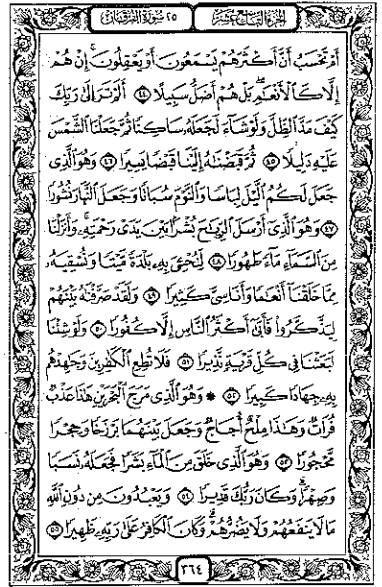 الجزء التاسع عشر
٢٥ سورة الفرقان
أَمْ تَحْسَبُ أَنَّ أَكْثَرَهُمْ يَسْمَعُونَ أَوْ يَعْقِلُونَ إِنْ هُمْ
إِلَّا كَالْأَنْعَٰمِ بَلْ هُمْ أَضَلُّ سَبِيلًا ٤٤ أَلَمْ تَرَ إِلَىٰ رَبِّكَ
كَيْفَ مَدَّ الظِّلَّ وَلَوْ شَآءَ لَجَعَلَهُ سَاكِنًا ثُمَّ جَعَلْنَا الشَّمْسَ
عَلَيْهِ دَلِيلًا ٤٥ ثُمَّ قَبَضْنَٰهُ إِلَيْنَا قَبْضًا يَسِيرًا ٤٦ وَهُوَ الَّذِى
جَعَلَ لَكُمُ الَّيْلَ لِبَاسًا وَالنَّوْمَ سُبَاتًا وَجَعَلَ النَّهَارَ نُشُورًا
٤٧ وَهُوَ الَّذِى أَرْسَلَ الرِّيَٰحَ نُشُرًا بَيْنَ يَدَىْ رَحْمَتِهِ وَأَنزَلْنَا
مِنَ السَّمَآءِ مَآءً طَهُورًا ٤٨ لِنُحْۦِىَ بِهِ بَلْدَةً مَّيْتًا وَنُسْقِيَهُ
مِمَّا خَلَقْنَا أَنْعَٰمًا وَأَنَاسِىَّ كَثِيرًا ٤٩ وَلَقَدْ صَرَّفْنَٰهُ بَيْنَهُمْ
لِيَذَّكَّرُوا فَأَبَىٰ أَكْثَرُ النَّاسِ إِلَّا كُفُورًا ٥٠ وَلَوْ شِئْنَا
لَبَعَثْنَا فِى كُلِّ قَرْيَةٍ نَّذِيرًا ٥١ فَلَا تُطِعِ الْكَٰفِرِينَ وَجَٰهِدْهُم
بِهِ جِهَادًا كَبِيرًا ٥٢ * وَهُوَ الَّذِى مَرَجَ الْبَحْرَيْنِ هَٰذَا عَذْبٌ
فُرَاتٌ وَهَٰذَا مِلْحٌ أُجَاجٌ وَجَعَلَ بَيْنَهُمَا بَرْزَخًا وَحِجْرًا
مَّحْجُورًا ٥٣ وَهُوَ الَّذِى خَلَقَ مِنَ الْمَآءِ بَشَرًا فَجَعَلَهُ نَسَبًا
وَصِهْرًا وَكَانَ رَبُّكَ قَدِيرًا ٥٤ وَيَعْبُدُونَ مِن دُونِ اللَّهِ
مَا لَا يَنفَعُهُمْ وَلَا يَضُرُّهُمْ وَكَانَ الْكَافِرُ عَلَىٰ رَبِّهِ ظَهِيرًا ٥٥
٣٦٤